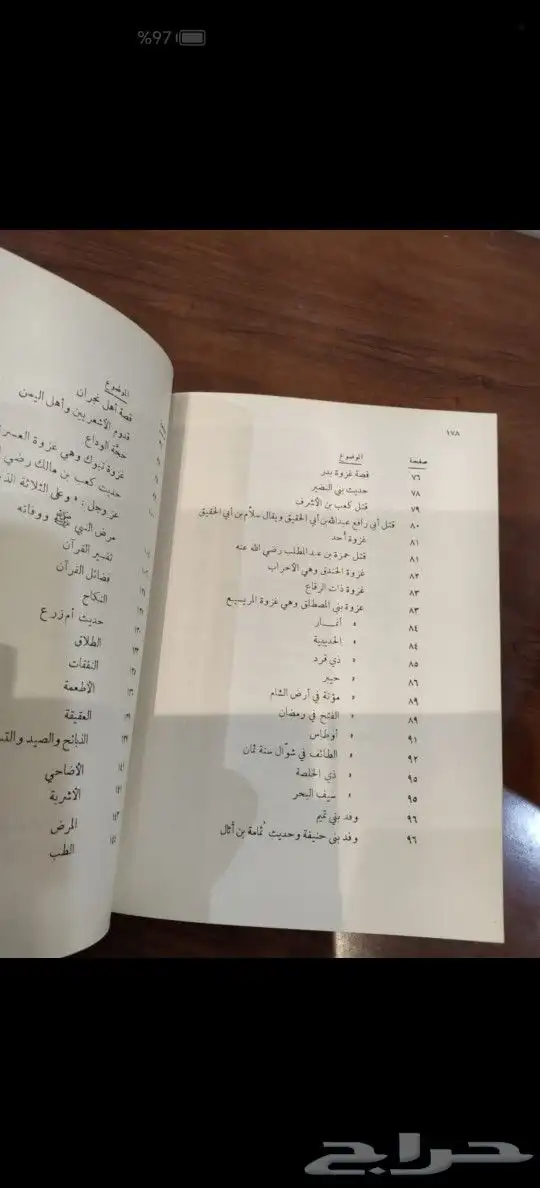 %97
١٧٨
صفحة الموضوع
٧٦ قصة غزوة بدر
٧٨ حديث بني النضير
٧٩ قتل كعب بن الأشرف
٨٠ قتل أبي رافع عبدالله بن أبي الحقيق ويقال سلام بن أبي الحقيق
٨١ غزوة أحد
٨١ قتل حمزة بن عبد المطلب رضي الله عنه
٨٢ غزوة الخندق وهي الأحزاب
٨٣ غزوة ذات الرقاع
٨٣ غزوة بني المصطلق وهي غزوة المريسيع
٨٤ » أنمـــار
٨٤ » الحديبية
٨٥ » ذي قرد
٨٦ » خيبر
٨٩ » مؤتة في أرض الشام
٨٩ » الفتح في رمضان
٩١ » أوطاس
٩٢ » الطائف في شوّال سنة ثمان
٩٥ » ذي الخلصة
٩٥ » سيف البحر
٩٦ وفد بني تميم
٩٦ وفد بني حنيفة وحديث ثُمامة بن أثال
الموضوع
قصة أهل نجران
قدوم الأشعريين وأهل اليمن
حجّة الوداع
غزوة تبوك وهي غزوة العسر
حديث كعب بن مالك رضي
عز وجل : « وعلى الثلاثة الذ
مرض النبي ﷺ ووفاته
تفسير القرآن
فضائل القرآن
النكاح
حديث أم زرع
الطلاق
النفقات
الأطعمة
العقيقة
الذبائح والصيد والق
الأضاحي
الأشربة
المرض
الطب
حراج